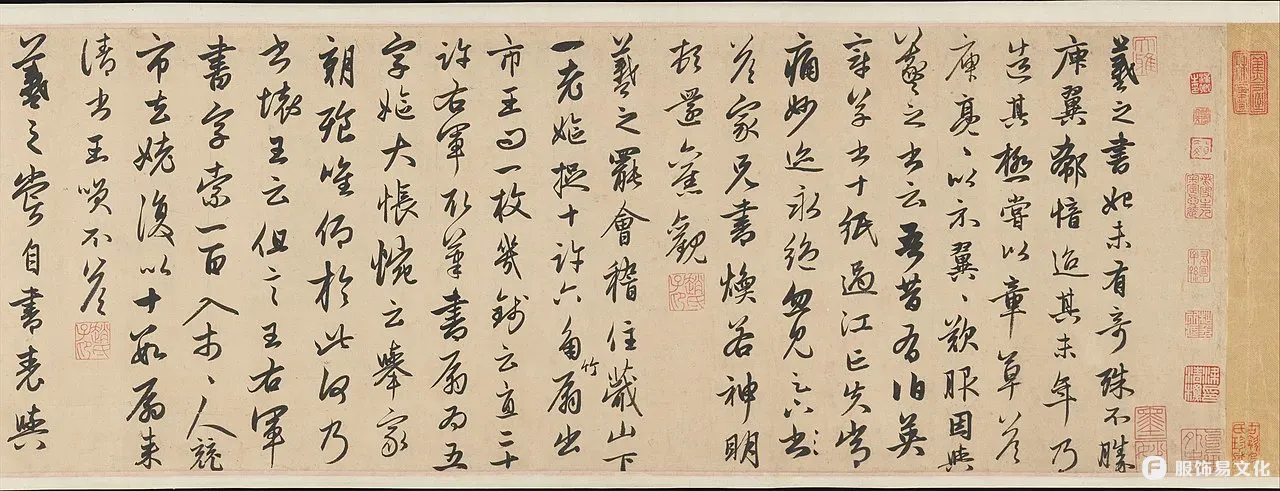 羲之書始未有奇殊不勝
庾翼郗愔迨其末年乃
造其極嘗以章草答
庾亮〻以示翼〻歎服因與
羲之書云吾昔有伯英
章草書十紙過江亡失常
痛妙迹永絕忽見足下書
答家兄書煥若神明
頓還舊觀
趙氏子昂
羲之罷會稽住蕺山下
一老嫗捉十許六角竹扇出
市王問一枚幾錢云直二十
許右軍取筆書扇為五
字嫗大悵惋云舉家
朝飡唯仰於此何乃
書壞王云但言王右軍
書字索一百入市〻人競
市去姥復以十數扇來
請書王笑不答
趙氏子昂
羲之嘗自書表與
服饰易文化